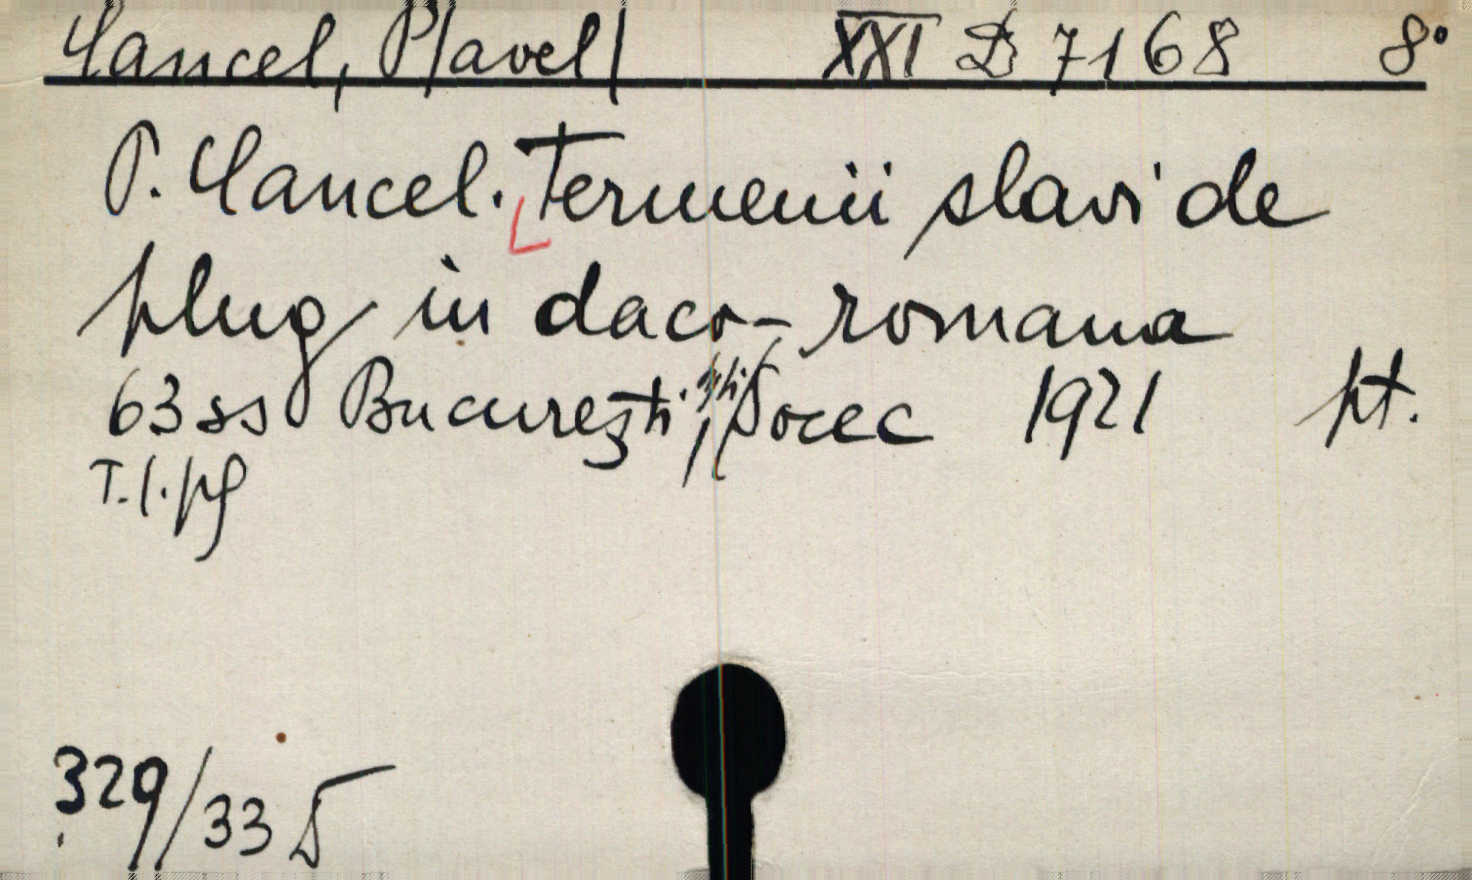 Cancel, P/avel/ XXI D 7168 8°
P. Cancel. Termenii slavi de
plug in daco-romana
63 ss București, Socec 1921 pt.
T.l.pf
329/33 D